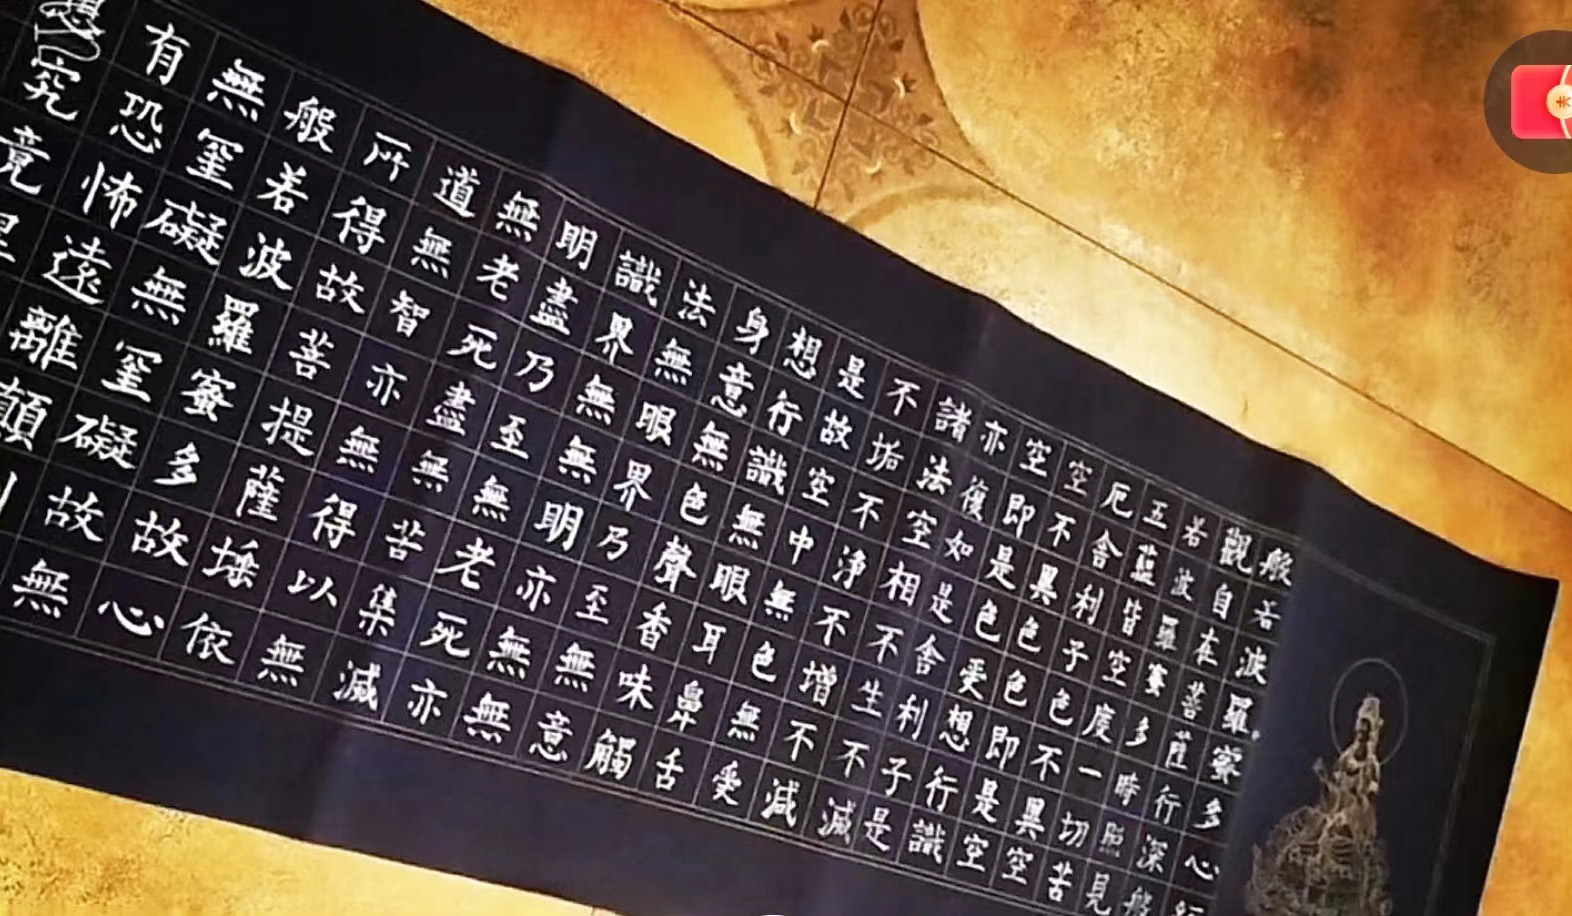 般若波羅蜜多心
觀自在菩薩行深般
若波羅蜜多時照見
五蘊皆空度一切苦
厄舍利子色不異空
空不異色色即是空
空即是色受想行識
亦復如是舍利子是
諸法空相不生不滅
不垢不净不增不減
是故空中無色無受
想行識無眼耳鼻舌
身意無色聲香味觸
法無眼界乃至無意
識界無無明亦無無
明盡乃至無老死亦
無老死盡無苦集滅
道無智亦無得以無
所得故菩提薩埵依
般若波羅蜜多故心
無罣礙無罣礙故無
有恐怖遠離顛
想究竟